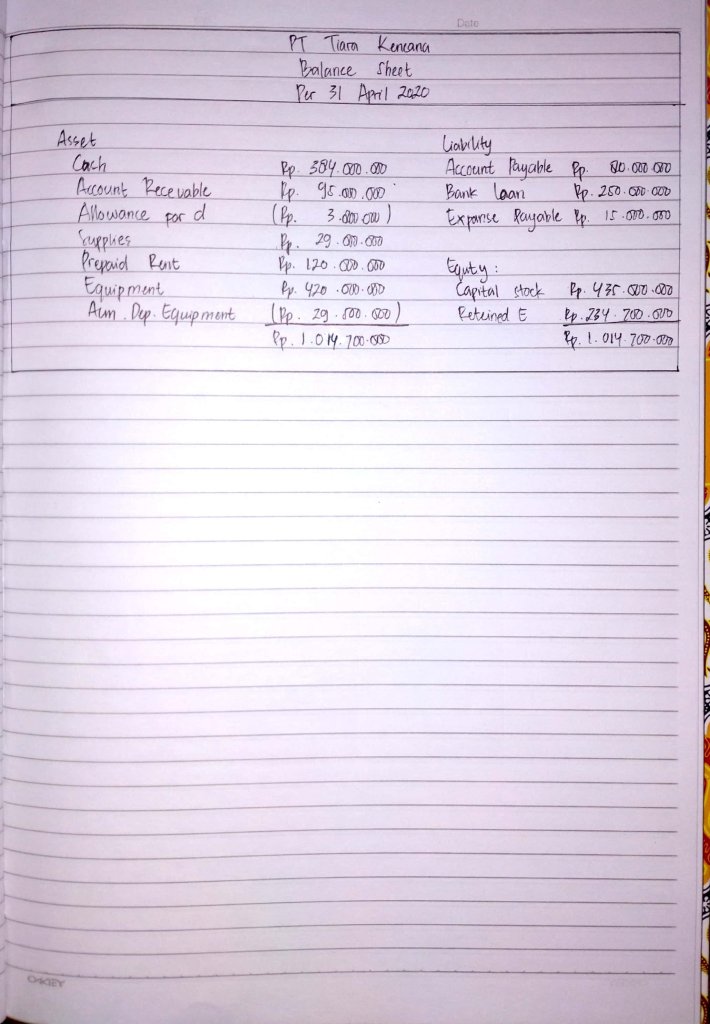 Date
PT Tiara Kencana
Balance Sheet
Per 31 April 2020
Asset Liability
Cach Rp. 384.000.000 Account Payable Rp. 80.000.000
Account Recevable Rp. 95.000.000 Bank loan Rp. 250.000.000
Allowance por d (Rp. 3.800.000) Expanse Payable Rp. 15.000.000
Supplies Rp. 29.000.000
Prepaid Rent Rp. 120.000.000 Equty :
Equipment Rp. 420.000.000 Capital stock Rp. 435.000.000
Aum. Dep. Equipment (Rp. 29.500.000) Reteined E Rp. 234.700.000
Rp. 1.014.700.000 Rp. 1.014.700.000